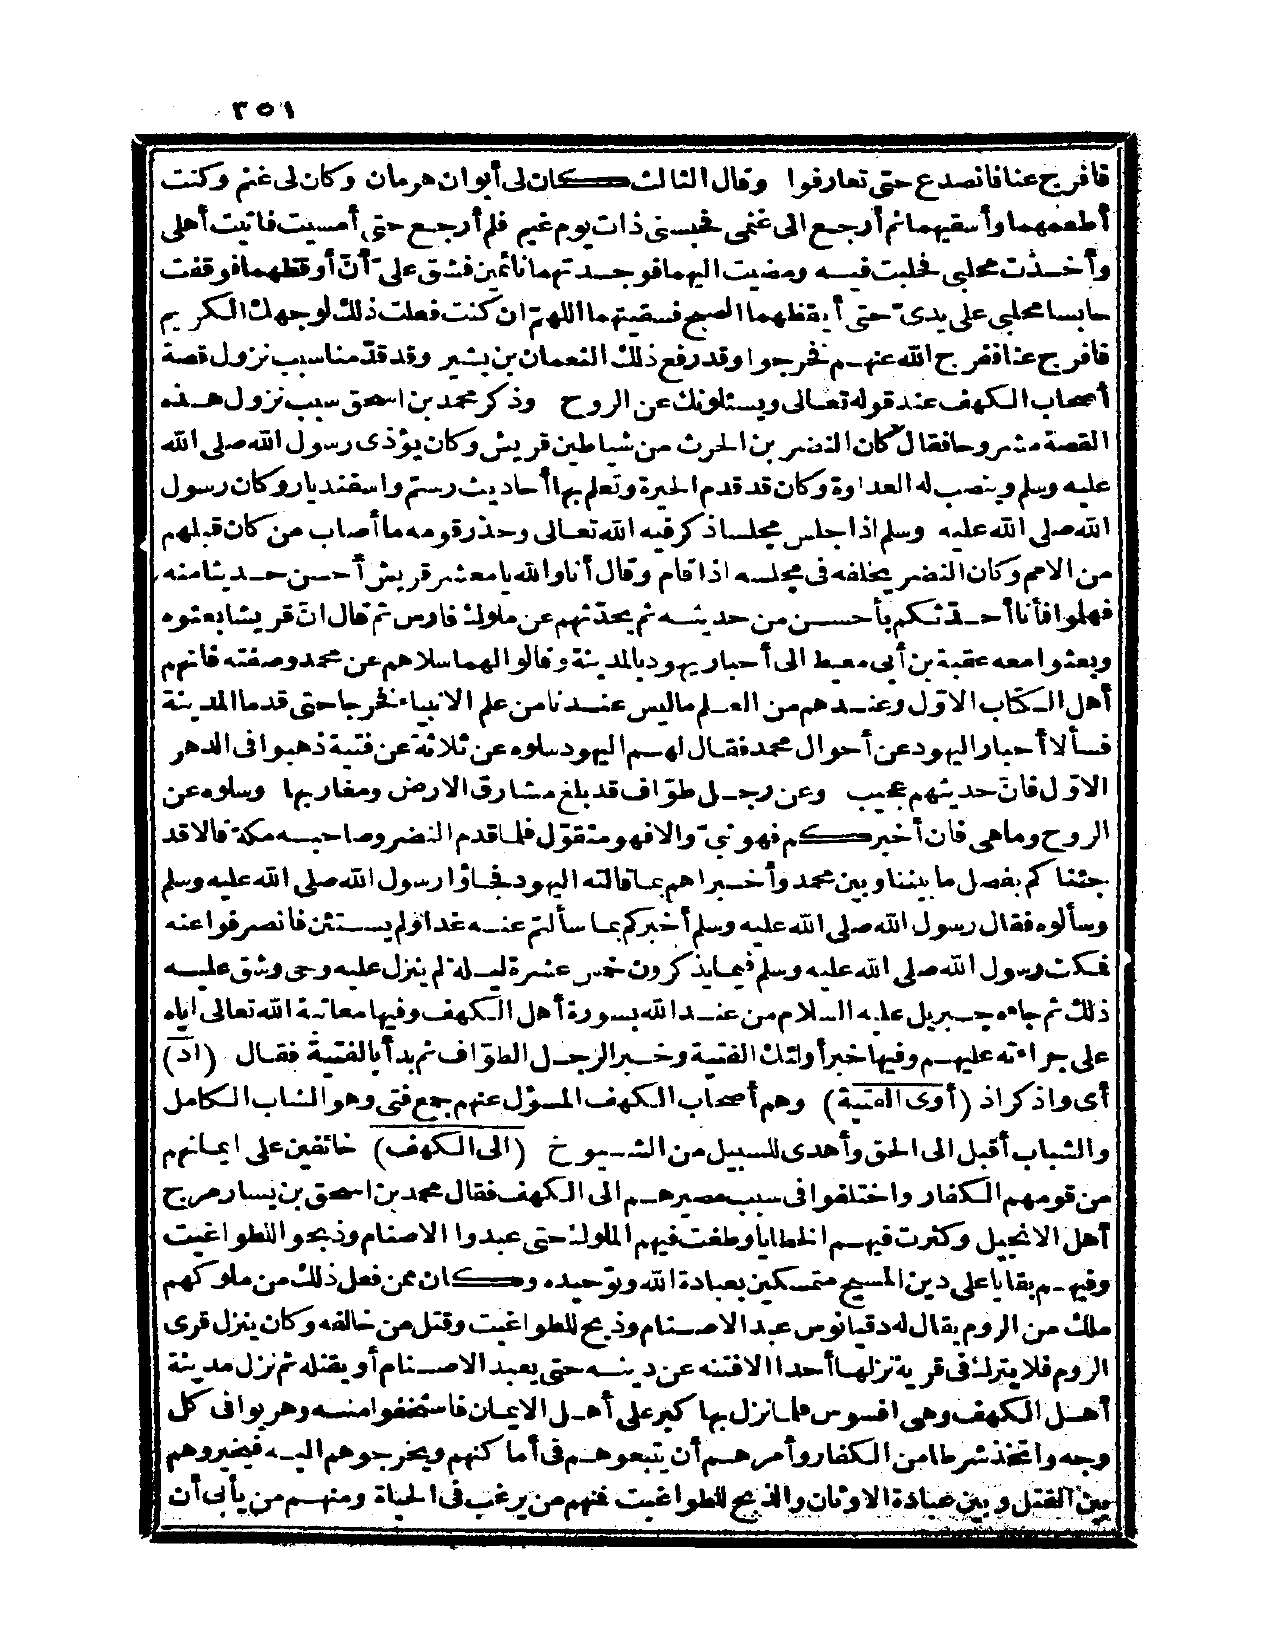 ٣٥١
فافرج عنا فانصدع حتى تعارفوا وقال الثالث كان لى أبوان هرمان وكان لى غنم وكنت
أطعمهما وأسقيهما ثم أرجع الى غنمى فحبسنى ذات يوم غيم فلم أرجع حتى أمسيت فاتيت أهلى
وأخذت محلبى فحلبت فيه ومضيت اليهما فوجدتهما نائمين فشق علىّ أن أوقظهما فوقفت
حابسا محلبى على يدىّ حتى أيقظهما الصبح فسقيتهما اللهمّ ان كنت فعلت ذلك لوجهك الكريم
فافرج عنا ففرج الله عنهم فخرجوا وقد رفع ذلك النعمان بن بشير وقد قدّمنا سبب نزول قصة
أصحاب الكهف عند قوله تعالى ويسئلونك عن الروح وذكر محمد بن اسحق سبب نزول هذه
القصة مشروحا فقال كان النضر بن الحرث من شياطين قريش وكان يؤذى رسول الله صلى الله
عليه وسلم وينصب له العداوة وكان قد قدم الحيرة وتعلم بها أحاديث رستم واسفنديار وكان رسول
الله صلى الله عليه وسلم اذا جلس مجلسا ذكر فيه الله تعالى وحذر قومه ما أصاب من كان قبلهم
من الامم وكان النضر يخلفه فى مجلسه اذا قام وقال أنا والله يا معشر قريش أحسن حديثا منه
فهلوا فأنا أحدثكم بأحسن من حديثه ثم يحدّثهم عن ملوك فارس ثم قال انّ قريشا بعثوه
وبعثوا معه عقبة بن أبى معيط الى أحبار يهود بالمدينة وقالوا لهما سلاهم عن محمد وصفته فانهم
أهل الكتاب الاوّل وعندهم من العلم ما ليس عندنا من علم الانبياء فخرجا حتى قدما المدينة
فسألا أحبار اليهود عن أحوال محمد فقال لهم اليهود سلوه عن ثلاثة عن فتية ذهبوا فى الدهر
الاوّل فانّ حديثهم عجيب وعن رجل طوّاف قد بلغ مشارق الارض ومغاربها وسلوه عن
الروح وما هى فان أخبركم فهو نبىّ والا فهو متقوّل فلما قدم النضر وصاحبه مكة قالا قد
جئناكم بفصل ما بيننا وبين محمد وأخبراهم بما قالته اليهود فجاؤا رسول الله صلى الله عليه وسلم
وسألوه فقال رسول الله صلى الله عليه وسلم أخبركم بما سألتم عنه غدا ولم يستثن فانصرفوا عنه
فمكث رسول الله صلى الله عليه وسلم فيما يذكرون خمس عشرة ليلة لم ينزل عليه وحى وشق عليه
ذلك ثم جاءه جبريل عليه السلام من عند الله بسورة أهل الكهف وفيها معاتبة الله تعالى اياه
على جراءته عليهم وفيها خبر أولئك الفتية وخبر الرجل الطوّاف ثم بدأ بالفتية فقال (اذ)
أى واذكر اذ (أوى الفتية) وهم أصحاب الكهف المسؤل عنهم جمع فتى وهو الشاب الكامل
والشباب أقبل الى الحق وأهدى للسبيل من الشيوخ (الى الكهف) خائفين على ايمانهم
من قومهم الكفار واختلفوا فى سبب مصيرهم الى الكهف فقال محمد بن اسحق بن يسار مرج
أهل الانجيل وكثرت فيهم الخطايا وطغت فيهم الملوك حتى عبدوا الاصنام وذبحوا للطواغيت
وفيهم بقايا على دين المسيح متمسكين بعبادة الله وتوحيده وكان ممن فعل ذلك من ملوكهم
ملك من الروم يقال له دقيانوس عبد الاصنام وذبح للطواغيت وقتل من خالفه وكان ينزل قرى
الروم فلا يترك فى قرية نزلها أحدا الا فتنه عن دينه حتى يعبد الاصنام أو يقتله ثم نزل مدينة
أهل الكهف وهى افسوس فلما نزل بها كبر على أهل الايمان فاستخفوا منه وهربوا فى كل
وجه واتخذ شرطا من الكفار وأمرهم أن يتبعوهم فى أماكنهم ويخرجوهم اليه فيخيرهم
بين القتل وبين عبادة الاوثان والذبح للطواغيت فمنهم من يرغب فى الحياة ومنهم من يأبى أن